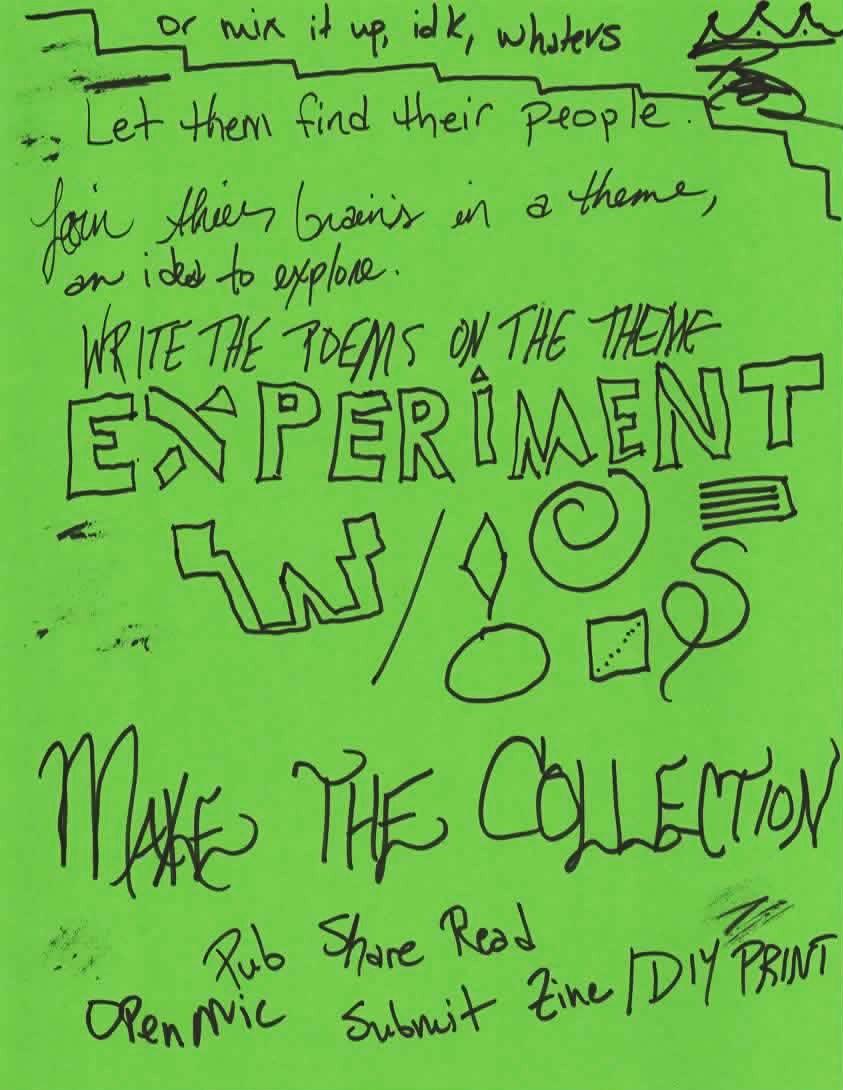 or mix it up, idk, whaters
Let them find their people.
Join thier brains in a theme,
an idea to explore.
WRITE THE POEMS ON THE THEME
EXPERIMENT
W/
MAKE THE COLLECTION
Pub Share Read
Open mic Submit Zine / DIY PRINT